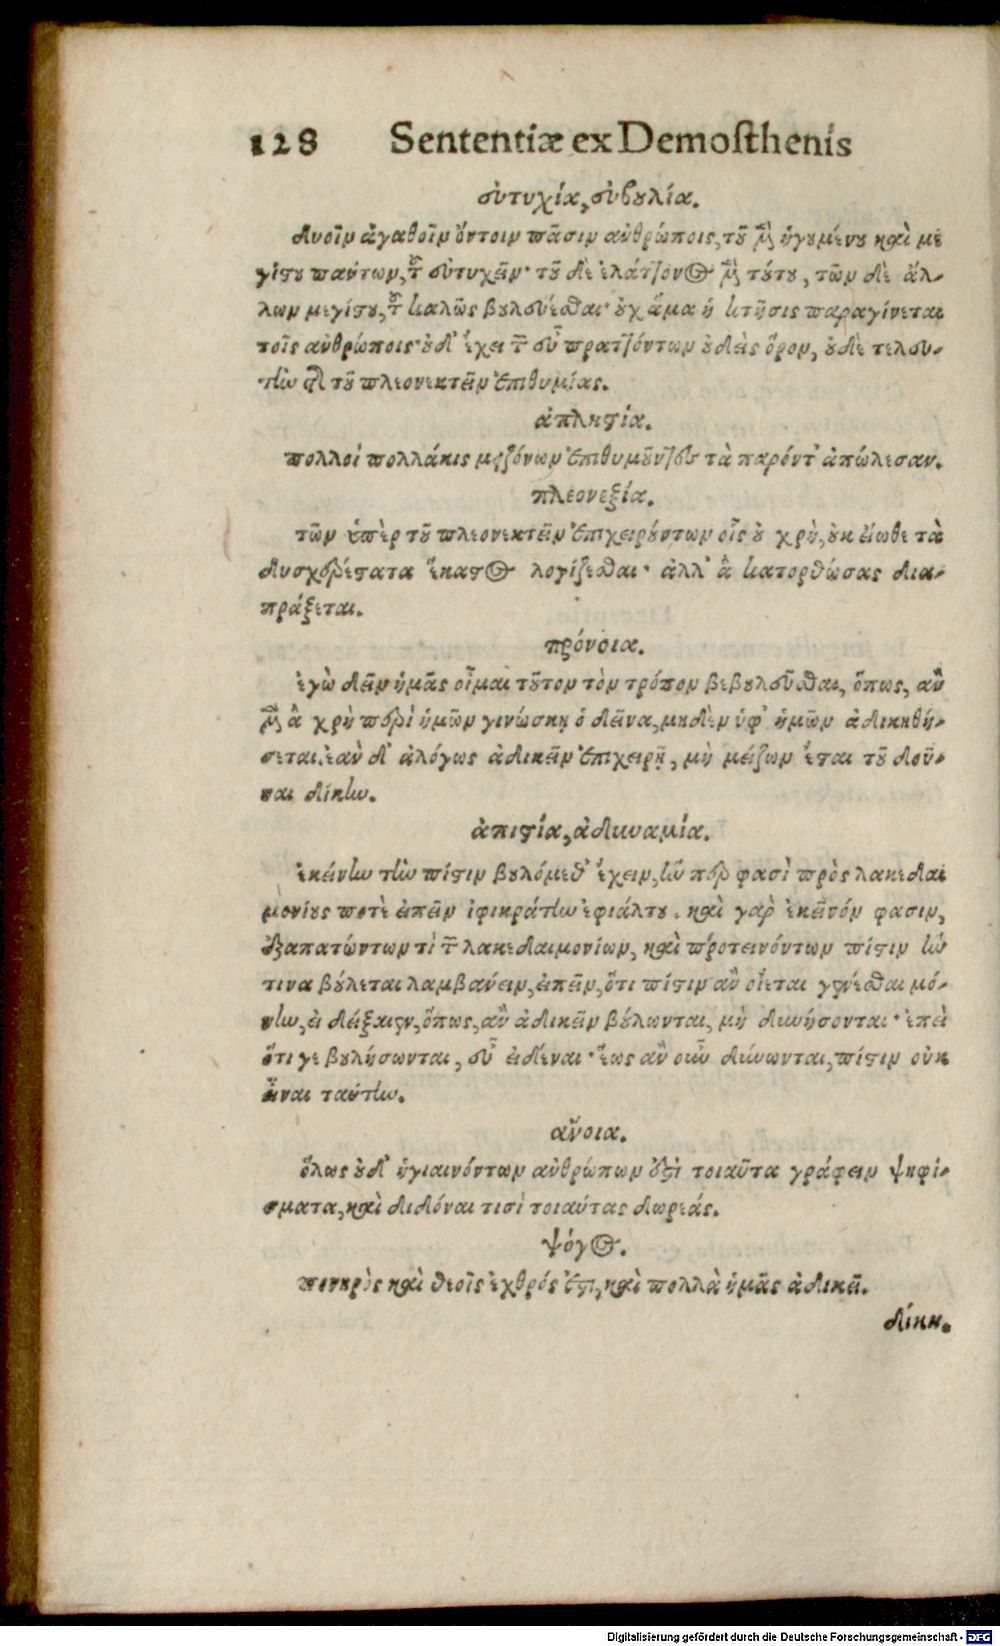 128 Sententiæ ex Demosthenis
εὐτυχία, εὐβουλία.
δυοῖν ἀγαθοῖν ὄντοιν πᾶσιν ἀνθρώποις, τοῦ μὲν ἡγουμένου καὶ με
γίστου πάντων, τοῦ εὐτυχεῖν· τοῦ δὲ ἐλάττονος μὲν τούτου, τῶν δὲ ἄλ-
λων μεγίστου, τοῦ καλῶς βουλεύεσθαι· οὐχ ἅμα ἡ κτῆσις παραγίνεται
τοῖς ἀνθρώποις· οὐδ' ἔχει τῶν εὖ πραττόντων οὐδεὶς ὅρον, οὐδὲ τελευ-
τὴν τῆς τοῦ πλεονεκτεῖν ἐπιθυμίας.
ἀπληστία.
πολλοὶ πολλάκις μειζόνων ἐπιθυμοῦντες τὰ παρόντ' ἀπώλεσαν.
πλεονεξία.
τῶν ὑπὲρ τοῦ πλεονεκτεῖν ἐπιχειρούντων οἷς οὐ χρὴ, οὐκ εἴωθε τὰ
δυσχερέστατα ἕκαστος λογίζεσθαι· ἀλλ' ἃ κατορθώσας δια-
πράξεται.
πρόνοια.
ἐγὼ δεῖν ἡμᾶς οἶμαι τοῦτον τὸν τρόπον βεβουλεῦσθαι, ὅπως, ἂν
μὲν ἃ χρὴ περὶ ἡμῶν γινώσκῃ ὁ δεῖνα, μηδὲν ὑφ' ἡμῶν ἀδικηθή-
σεται. ἐὰν δ' ἀλόγως ἀδικεῖν ἐπιχειρῇ, μὴ μείζων ἔσται τοῦ δοῦ-
ναι δίκην.
ἀπιστία, ἀδυναμία.
ἐκείνην τὴν πίστιν βουλόμεθ' ἔχειν, ἥν περ φασὶ πρὸς λακεδαι
μονίους ποτὲ εἰπεῖν ἰφικράτην ἐφιάλτου. καὶ γὰρ ἐκεῖνόν φασιν,
ἐξαπατώντων τὶ τῶν λακεδαιμονίων, καὶ προτεινόντων πίστιν ἥν
τινα βούλεται λαμβάνειν, εἰπεῖν, ὅτι πίστιν ἂν οἴεται γενέσθαι μό-
νην, εἰ δείξαιεν, ὅπως, ἂν ἀδικεῖν βούλωνται, μὴ δυνήσονται· ἐπεὶ
ὅτι γε βουλήσωνται, εὖ εἰδέναι· ἕως ἂν οὖν δύνωνται, πίστιν οὐκ
εἶναι ταύτην.
ἄνοια.
ὅλως οὐδ' ὑγιαινόντων ἀνθρώπων ἐστὶ τοιαῦτα γράφειν ψηφί-
σματα, καὶ διδόναι τισὶ τοιαύτας δωρεάς.
ψόγος.
πονηρὸς καὶ θεοῖς ἐχθρός ἐστι, καὶ πολλὰ ἡμᾶς ἀδικεῖ.
δίκη.
Digitalisierung gefördert durch die Deutsche Forschungsgemeinschaft - DFG